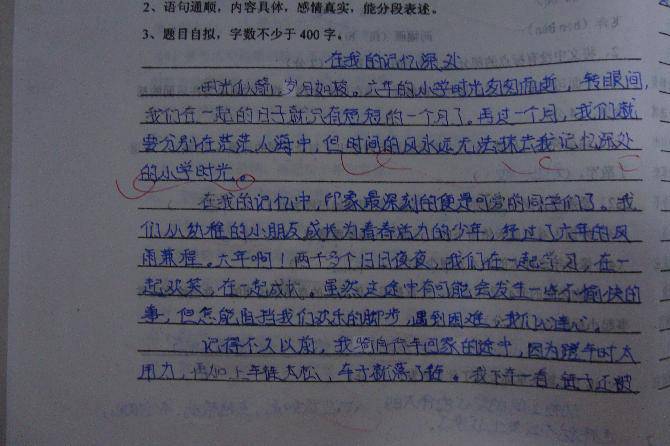 2、语句通顺，内容具体，感情真实，能分段表述。
3、题目自拟，字数不少于400字。
在我的记忆深处
时光似箭，岁月如梭。六年的小学时光匆匆而逝，转眼间，
我们在一起的日子就只有短短的一个月了。再过一个月，我们就
要分别在茫茫人海中，但时间的风永远无法抹去我记忆深处
的小学时光。
在我的记忆中，印象最深刻的便是可爱的同学们了。我
们从幼稚的小朋友成长为青春活力的少年，经过了六年的风
雨兼程。六年啊！两千多个日日夜夜，我们在一起学习，在一
起欢笑，在一起成长。虽然这途中有可能会发生一些不愉快的
事，但怎能阻挡我们欢乐的脚步，遇到困难，我们心连心。
记得不久以前，我骑自行车回家的途中，因为蹬车时太
用力，再加上车链太松，车子就落了链。我下车一看，链子还被